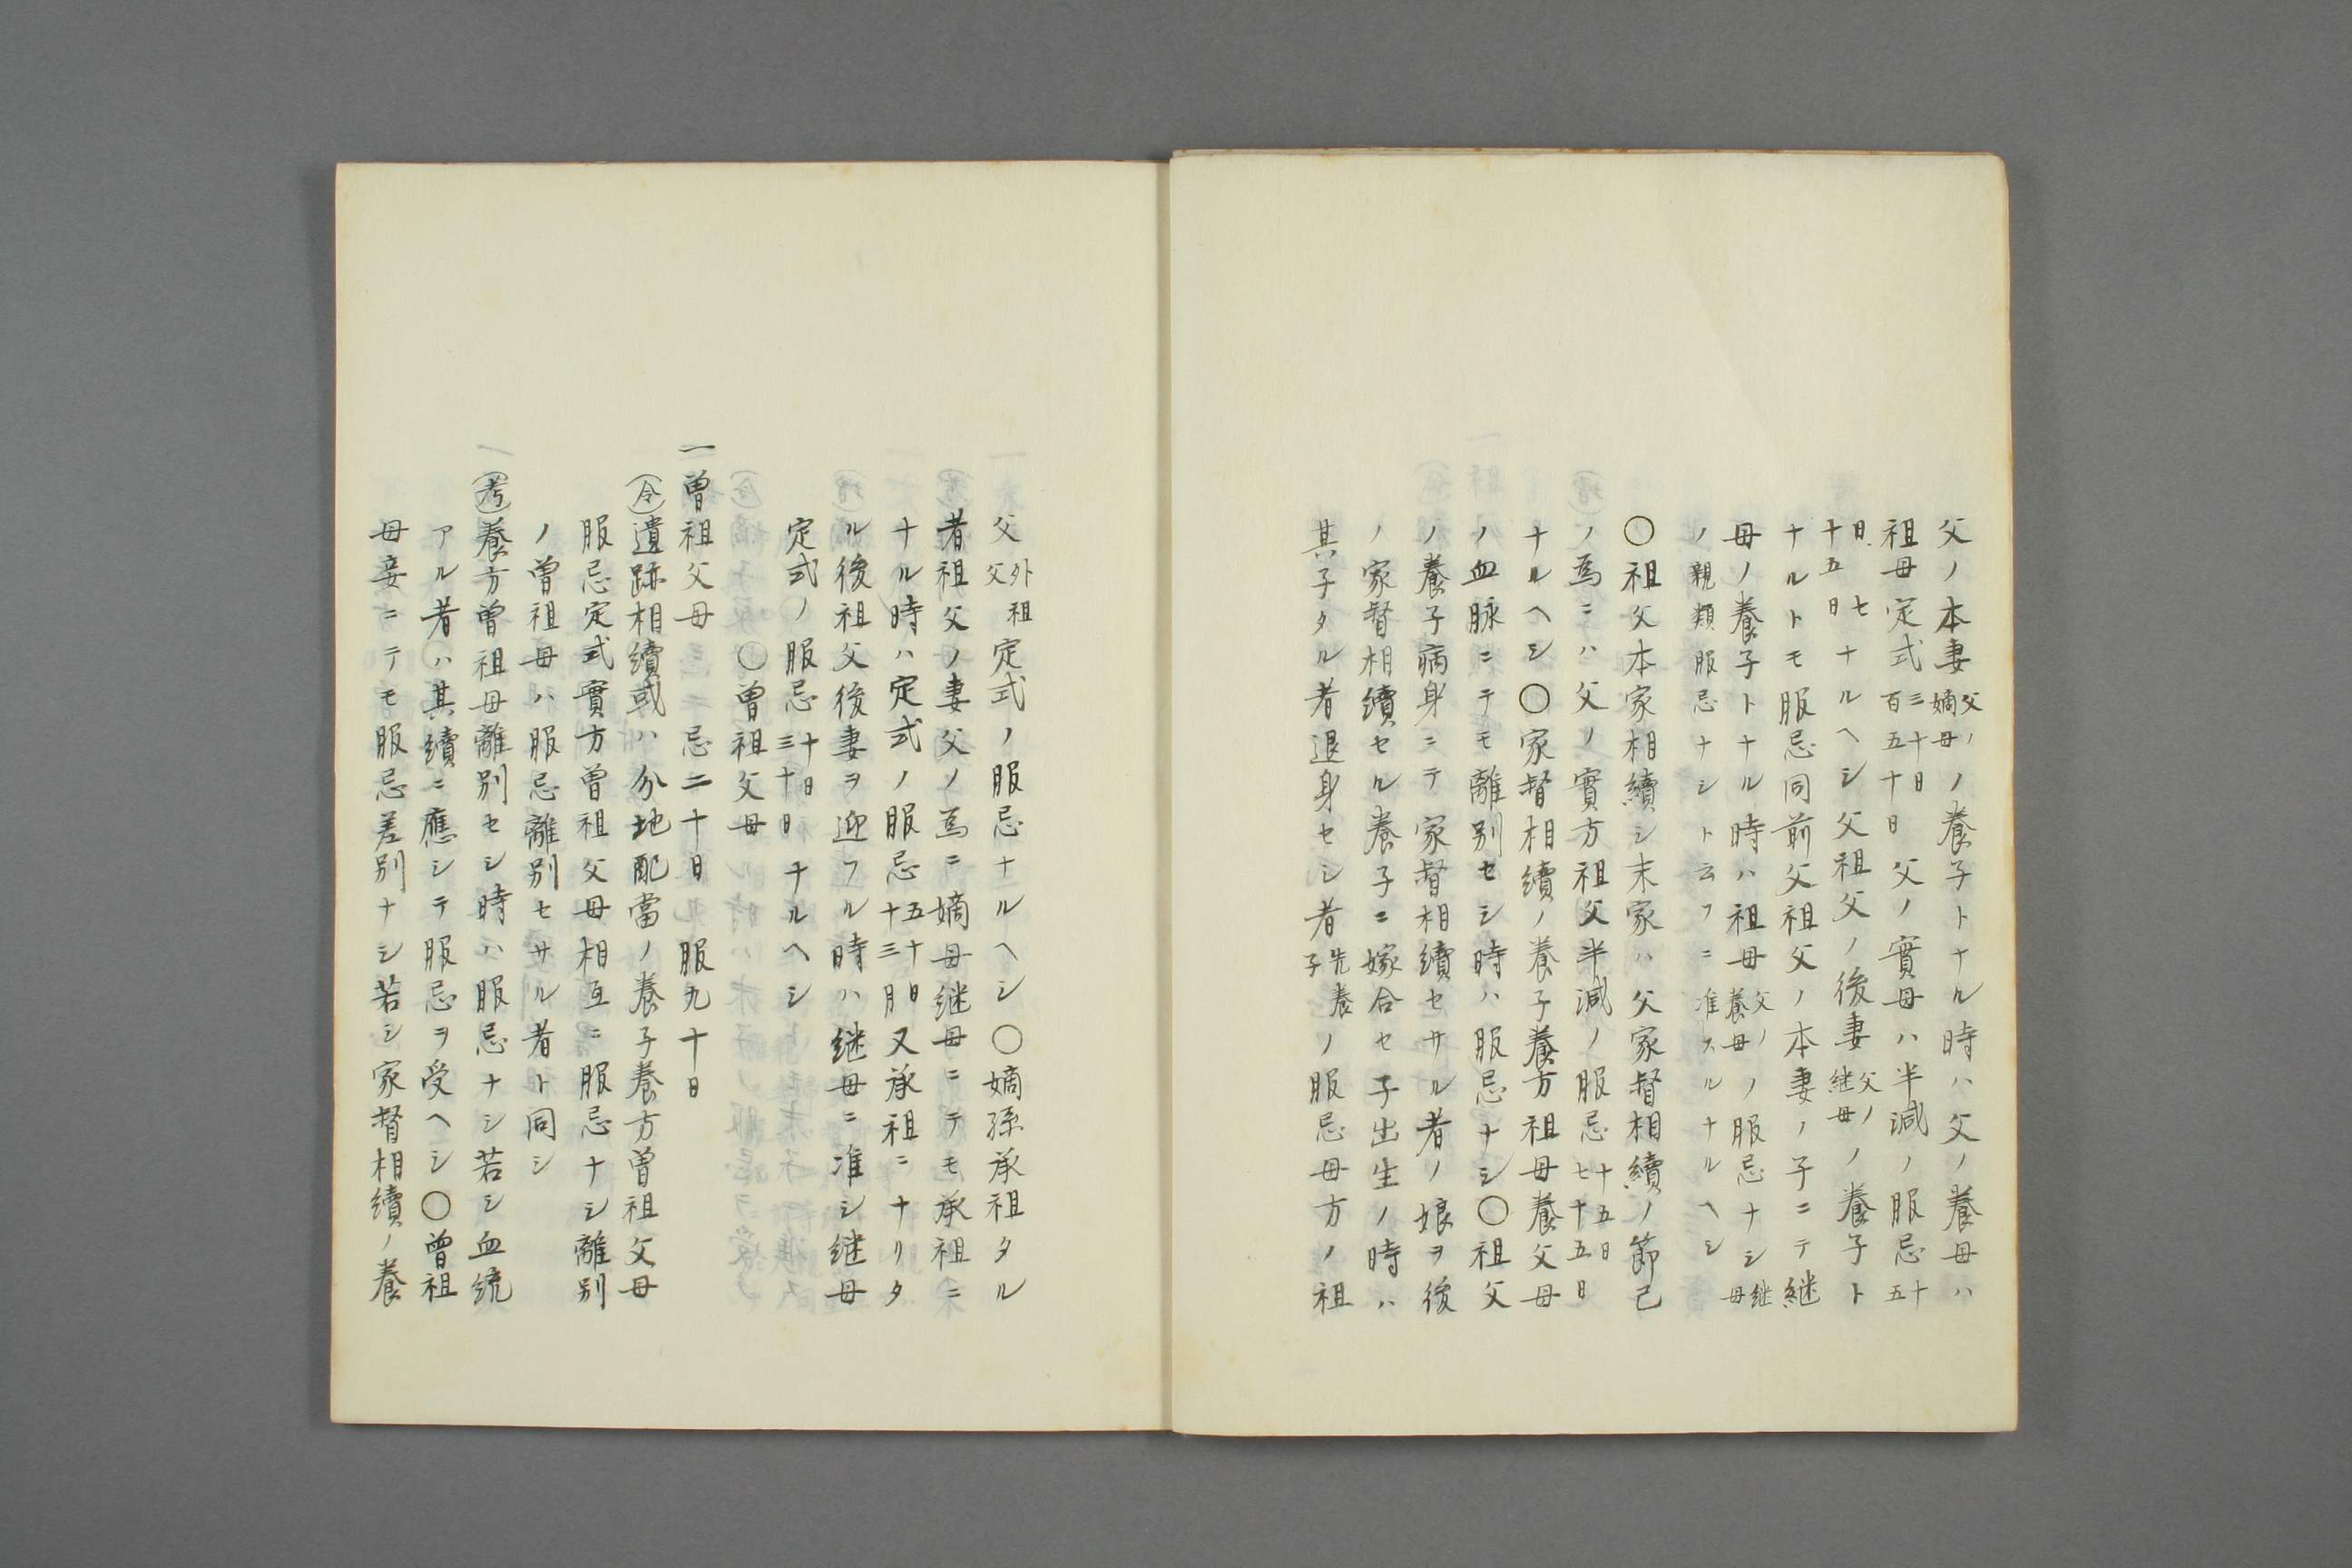 父ノ本妻父ノ嫡母ノ養子トナル時ハ父ノ養母ハ
祖母定式三十日百五十日父ノ實母ハ半減ノ服忌十五
日七十五日ナルヘシ父祖父ノ後妻父ノ継母ノ養子ト
ナルトモ服忌同前父祖父ノ本妻ノ子ニテ継
母ノ養子トナル時ハ祖母父ノ養母ノ服忌ナシ継母
ノ親類服忌ナシト云フニ准スルナルヘシ
〇祖父本家相續シ末家ハ父家督相續ノ節己
ノ為ニハ父ノ實方祖父半減ノ服忌十五日七十五日
ナルヘシ〇家督相續ノ養子養方祖母養父母
ノ血脉ニテモ離別セシ時ハ服忌ナシ〇祖父
ノ養子病身ニテ家督相續セサル者ノ娘ヲ後
ノ家督相續セル養子ニ嫁合セ子出生ノ時ハ
其子タル者退身セシ者先養子ノ服忌母方ノ祖
父外祖父定式ノ服忌ナルヘシ〇嫡孫承祖タル
者祖父ノ妻父ノ為ニ嫡母継母ニテモ承祖ニ
ナル時ハ定式ノ服忌五十日十三月又承祖ニナリタ
ル後祖父後妻ヲ迎フル時ハ継母ニ准シ継母
定式ノ服忌十日三十日ナルヘシ
〇曽祖父母
一曽祖父母 忌二十日 服九十日
㋹遺跡相續或ハ分地配當ノ養子養方曽祖父母
服忌定式實方曽祖父母相互ニ服忌ナシ離別
ノ曽祖母ハ服忌離別セサル者ト同シ
(考)養方曽祖母離別セシ時ハ服忌ナシ若シ血統
アル者ハ其續ニ應シテ服忌ヲ受ヘシ〇曽祖
母妾ニテモ服忌差別ナシ若シ家督相續ノ養